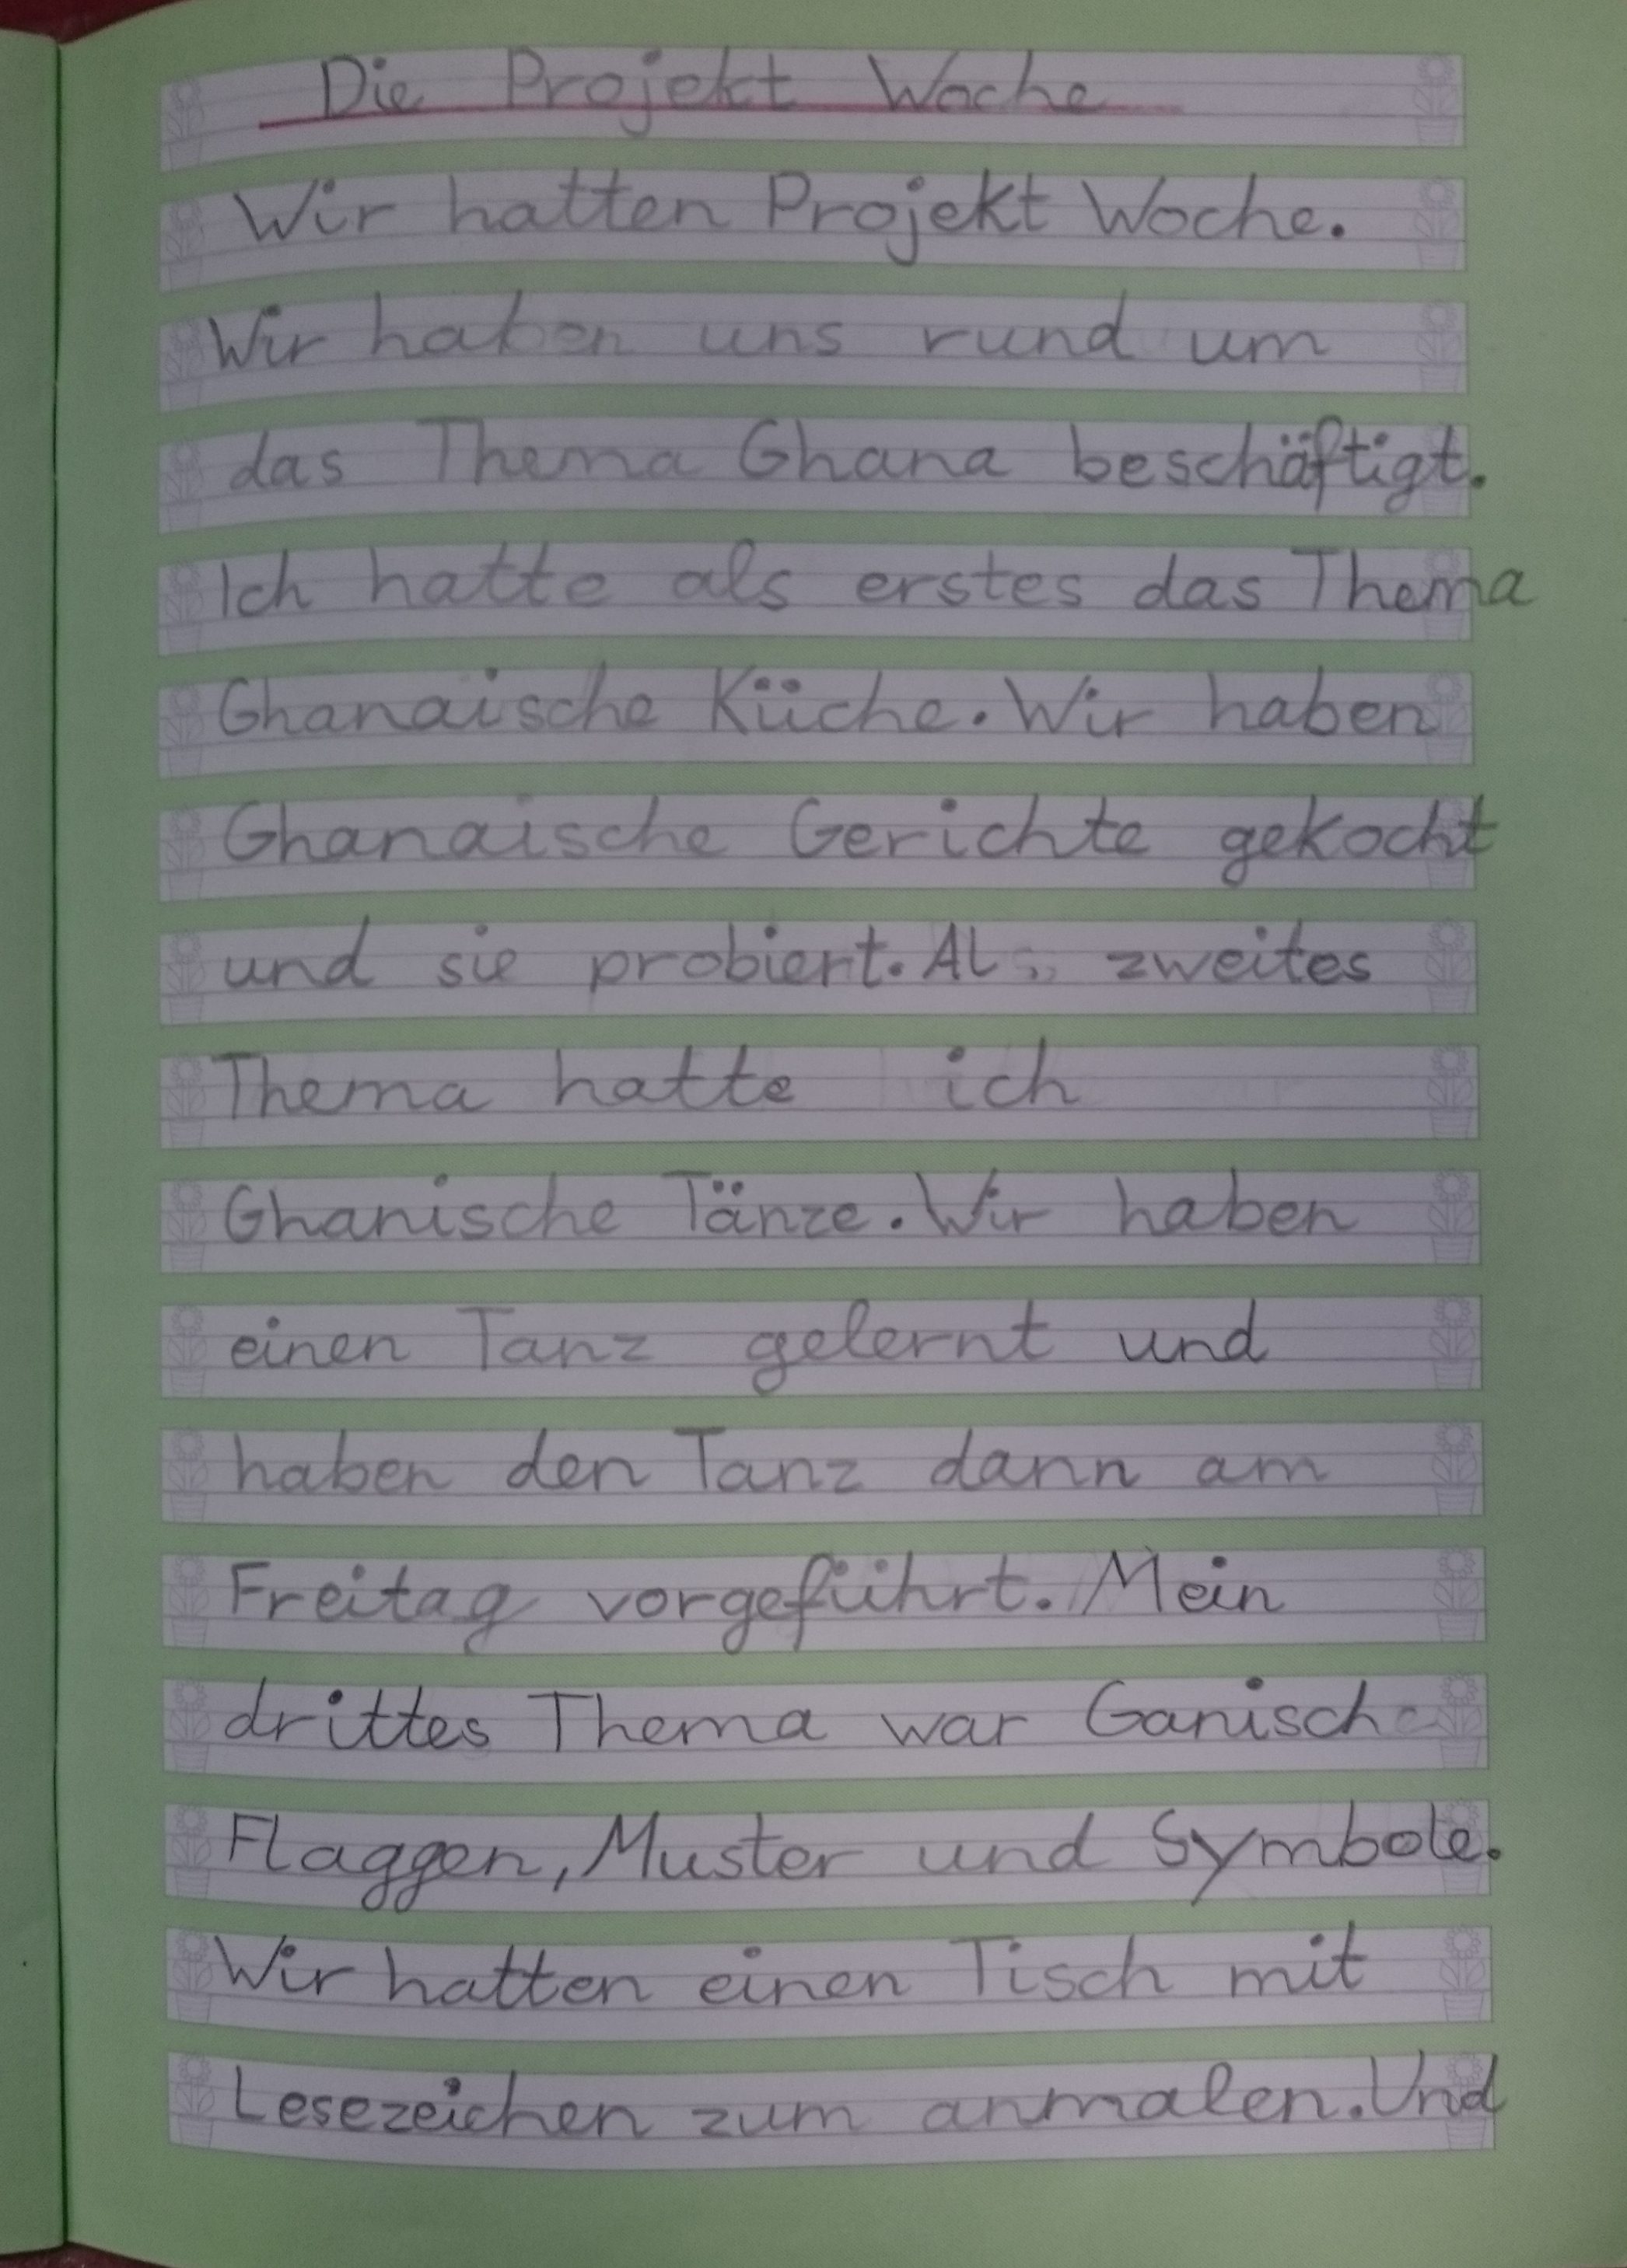 Die Projekt Woche
Wir hatten Projekt Woche.
Wir haben uns rund um
das Thema Ghana beschäftigt.
Ich hatte als erstes das Thema
Ghanaische Küche. Wir haben
Ghanaische Gerichte gekocht
und sie probiert. Als zweites
Thema hatte ich
Ghanische Tänze. Wir haben
einen Tanz gelernt und
haben den Tanz dann am
Freitag vorgeführt. Mein
drittes Thema war Ganische
Flaggen, Muster und Symbole.
Wir hatten einen Tisch mit
Lesezeichen zum anmalen. Und